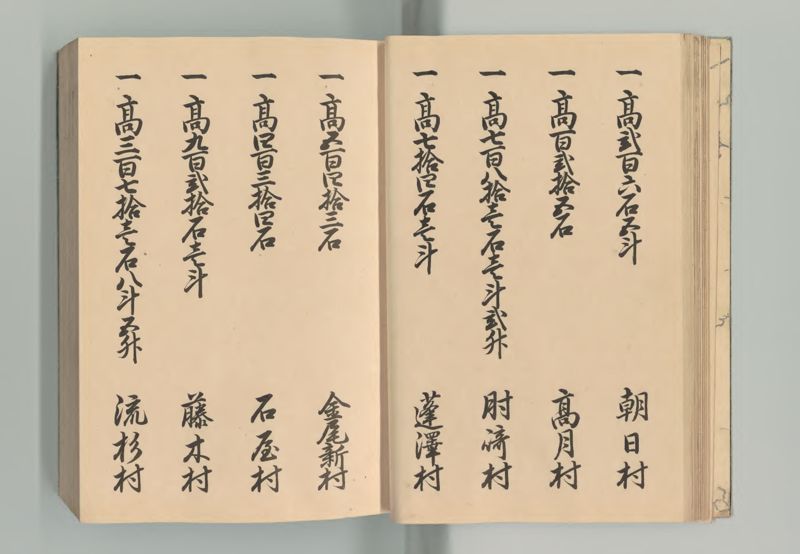 一 高弐百六石五斗 朝日村
一 高百弐拾五石 高月村
一 高七百八拾壱石壱斗弐升 肘崎村
一 高七拾四石壱斗 蓬澤村
一 高五百四拾三石 金尾新村
一 高四百三拾四石 石屋村
一 高九百弐拾石壱斗 藤木村
一 高三百七拾壱石八斗五升 流杉村